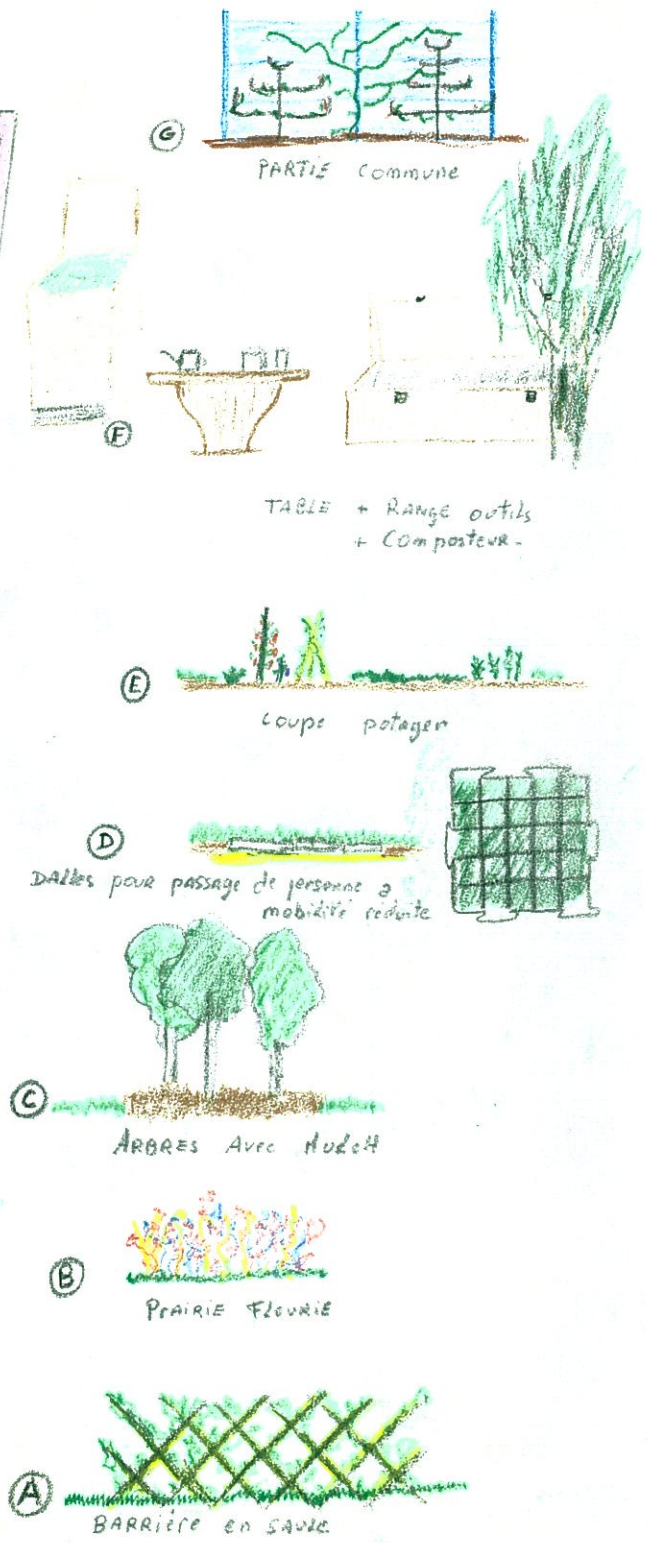 G
PARTIE commune
F
TABLE + RANGE outils
+ Composteur-
E
coupe potager
D
DALLES pour passage de personne a
mobilité réduite
C
ARBRES Avec MulcH
B
PrAIRIE FLEURIE
A
BARRIére en SAULE